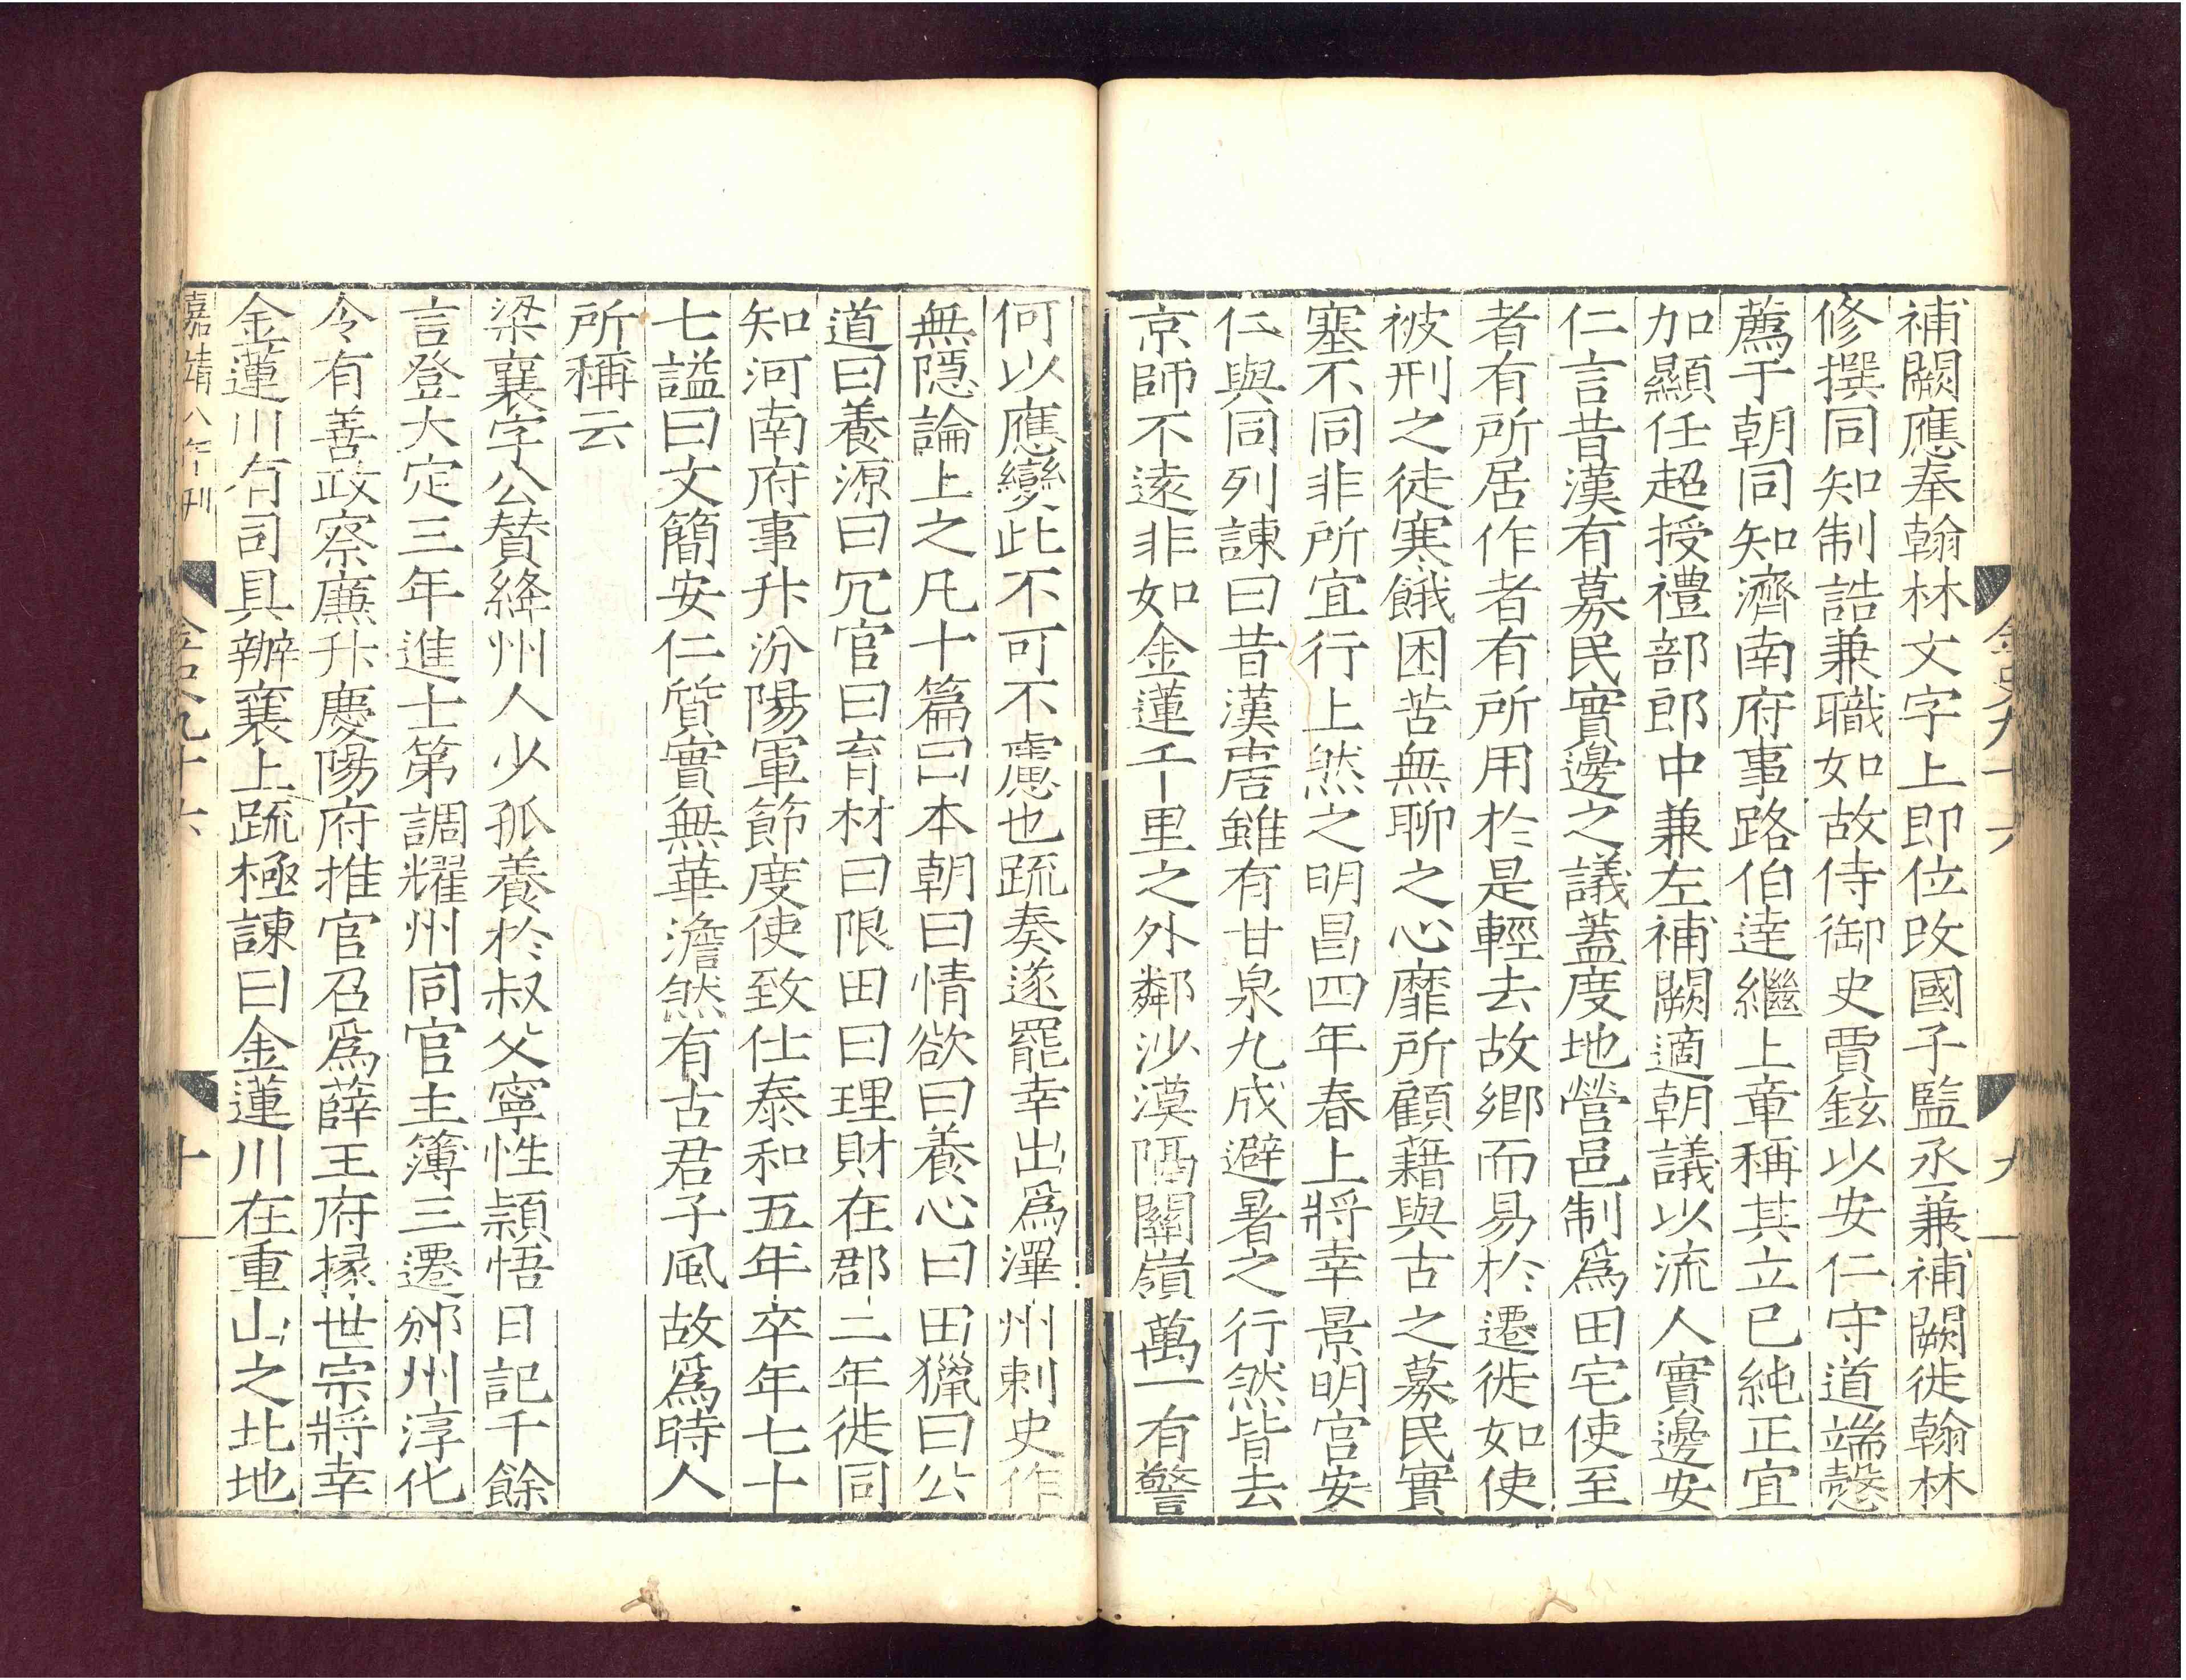 補闕應奉翰林文字上即位改國子監丞兼補闕徙翰林
修撰同知制誥兼職如故侍御史賈鉉以安仁守道端慤
薦于朝同知濟南府事路伯達繼上章稱其立已純正宜
加顯任超授禮部郎中兼左補闕適朝議以流人實邊安
仁言昔漢有募民實邊之議蓋度地營邑制為田宅使至
者有所居作者有所用於是輕去故鄉而易於遷徙如使
被刑之徒寒餓困苦無聊之心靡所顧藉與古之募民實
塞不同非所宜行上然之明昌四年春上將幸景明宮安
仁與同列諫曰昔漢唐雖有甘泉九成避暑之行然皆去
京師不遠非如金蓮千里之外鄰沙漠隔關嶺萬一有警
金史九十六
九
何以應變此不可不慮也疏奏遂罷幸出為澤州刺史作
無隱論上之凡十篇曰本朝曰情欲曰養心曰田獵曰公
道曰養源曰冗官曰育材曰限田曰理財在郡二年徙同
知河南府事升汾陽軍節度使致仕泰和五年卒年七十
七謚曰文簡安仁質實無華澹然有古君子風故為時人
所稱云
梁襄字公贊絳州人少孤養於叔父寧性穎悟日記千餘
言登大定三年進士第調耀州同官主簿三遷邠州淳化
令有善政察廉升慶陽府推官召為薛王府掾世宗將幸
金蓮川有司具辦襄上疏極諫曰金蓮川在重山之北地
嘉靖八年刊
金史九十六
十